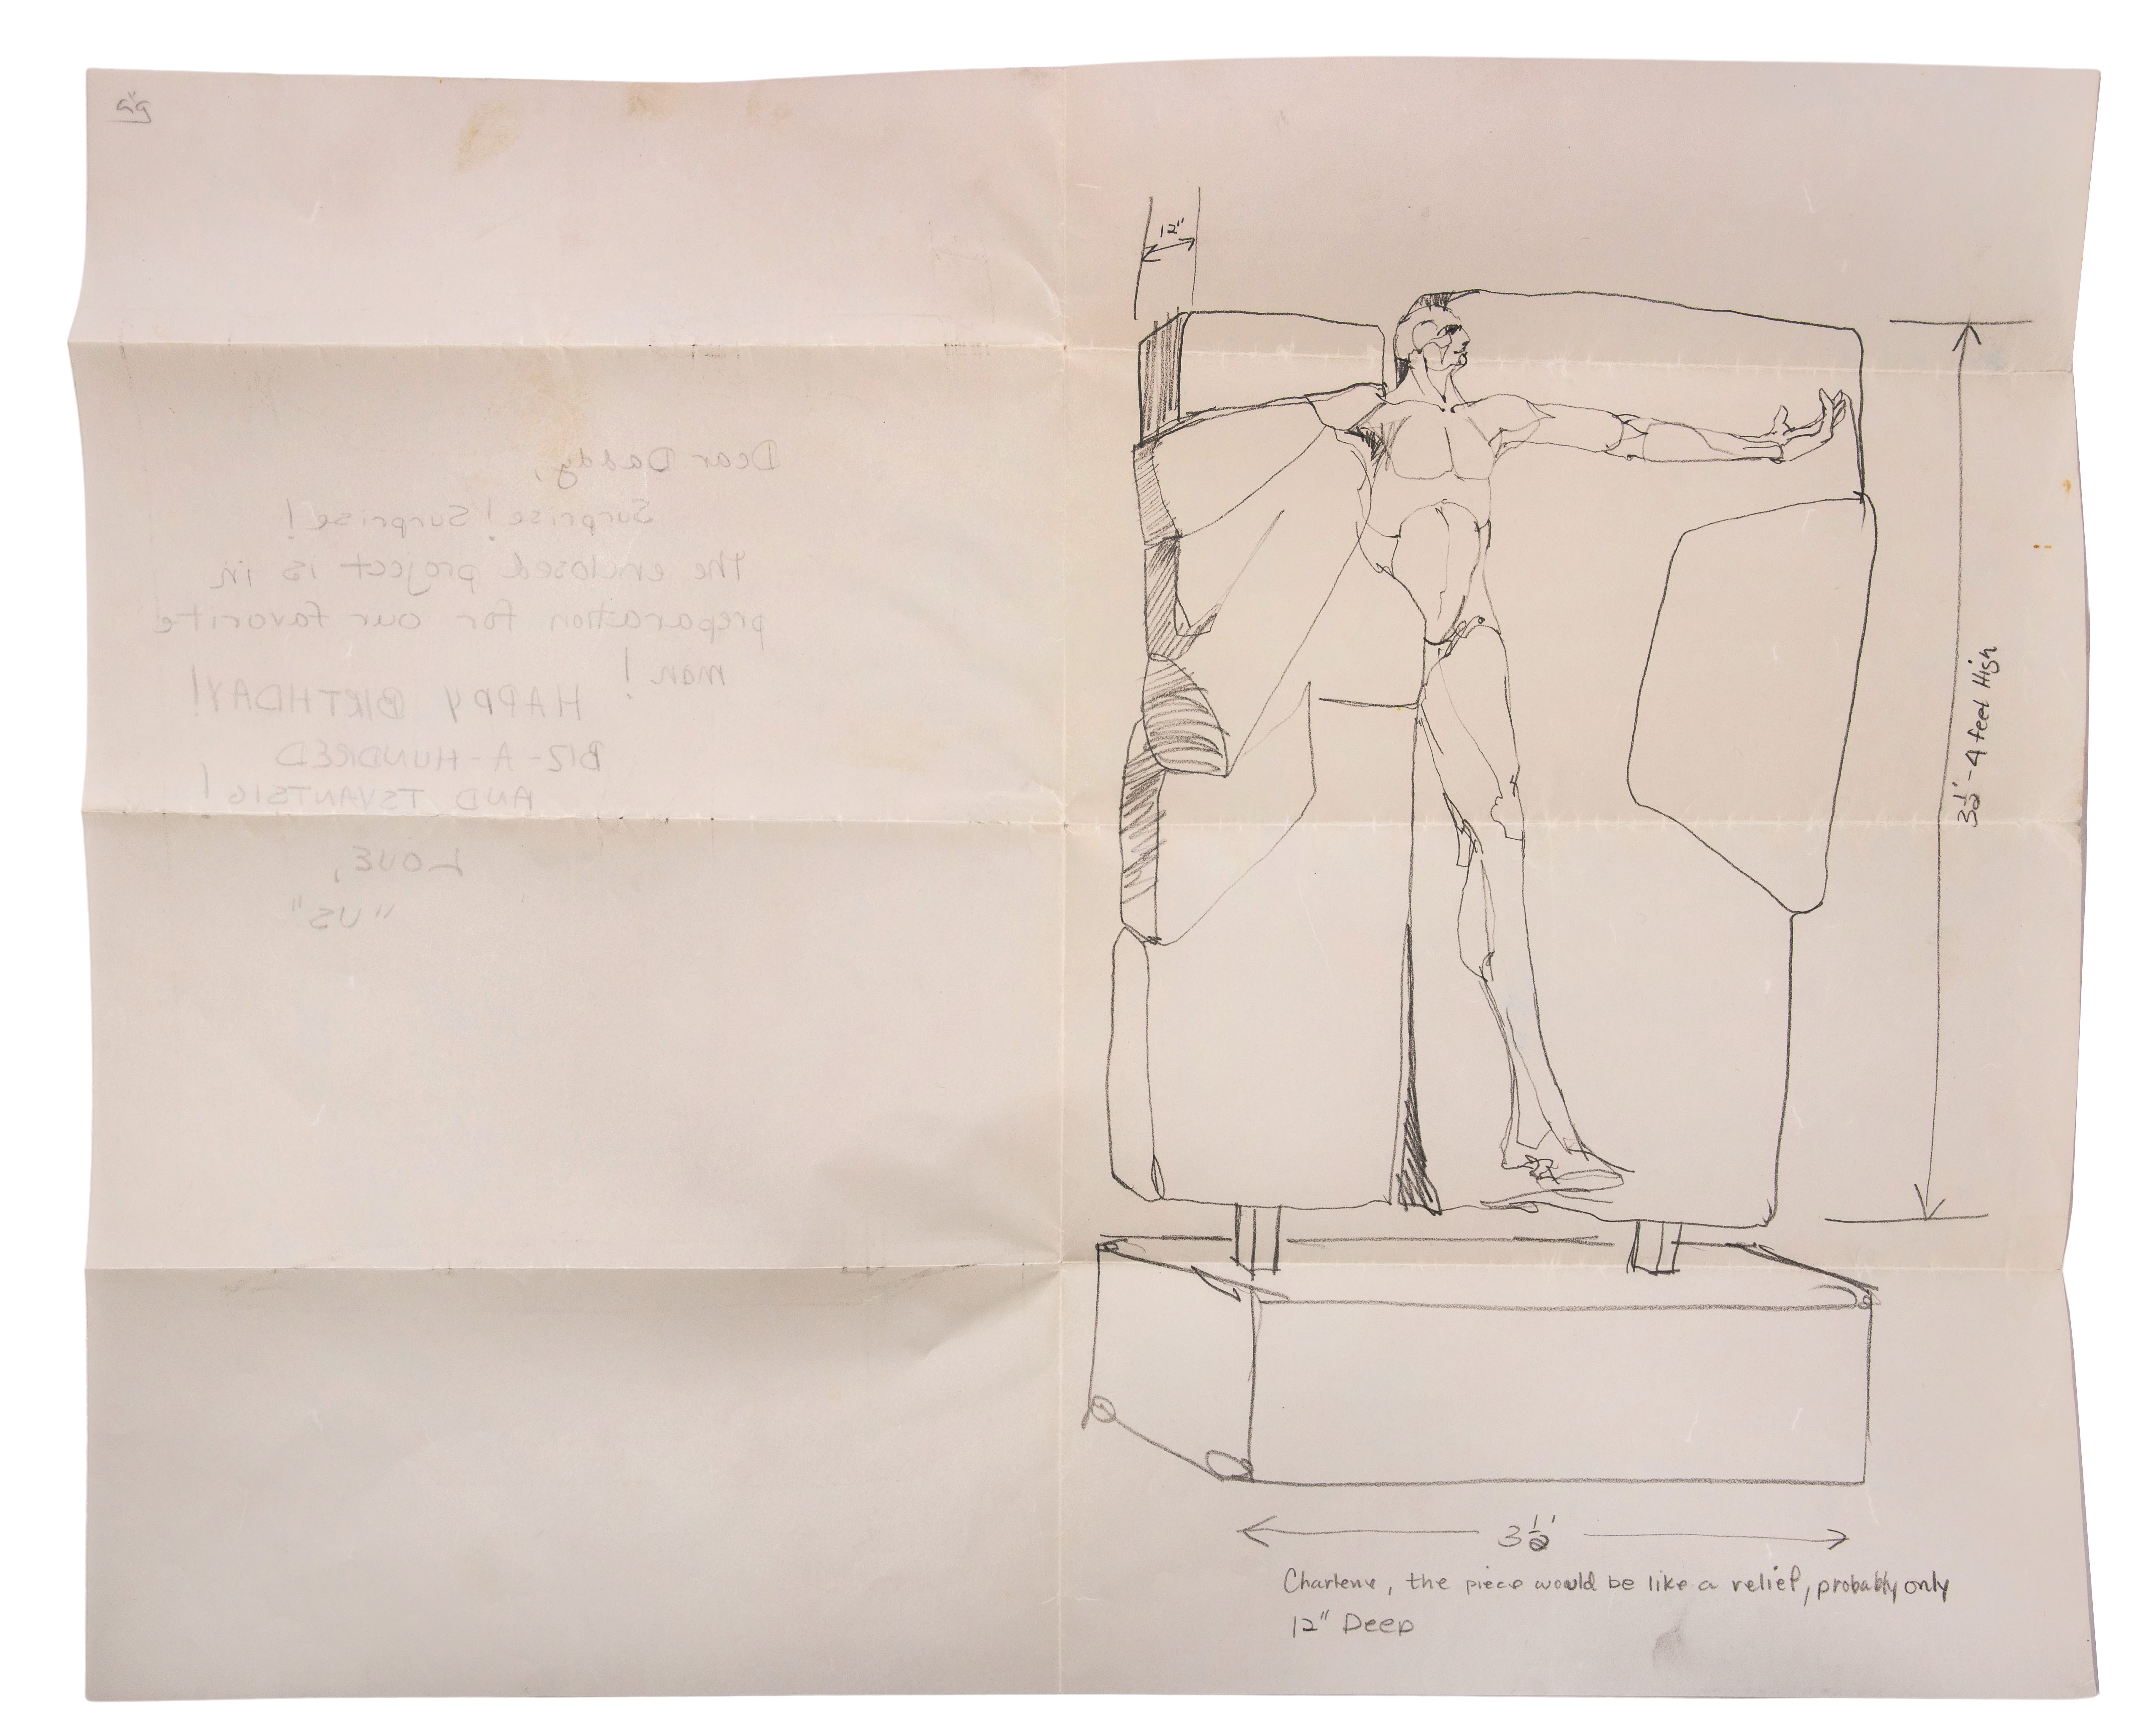 Dear Daddy,
Surprise! Surprise!
The enclosed project is in
preparation for our favorite
man!
HAPPY BIRTHDAY!
BIZ-A-HUNDRED
AND TSVANTSIG!
LOVE,
"US"
12"
3½'-4 feet High
3½'
Charlene, the piece would be like a relief, probably only
12" Deep